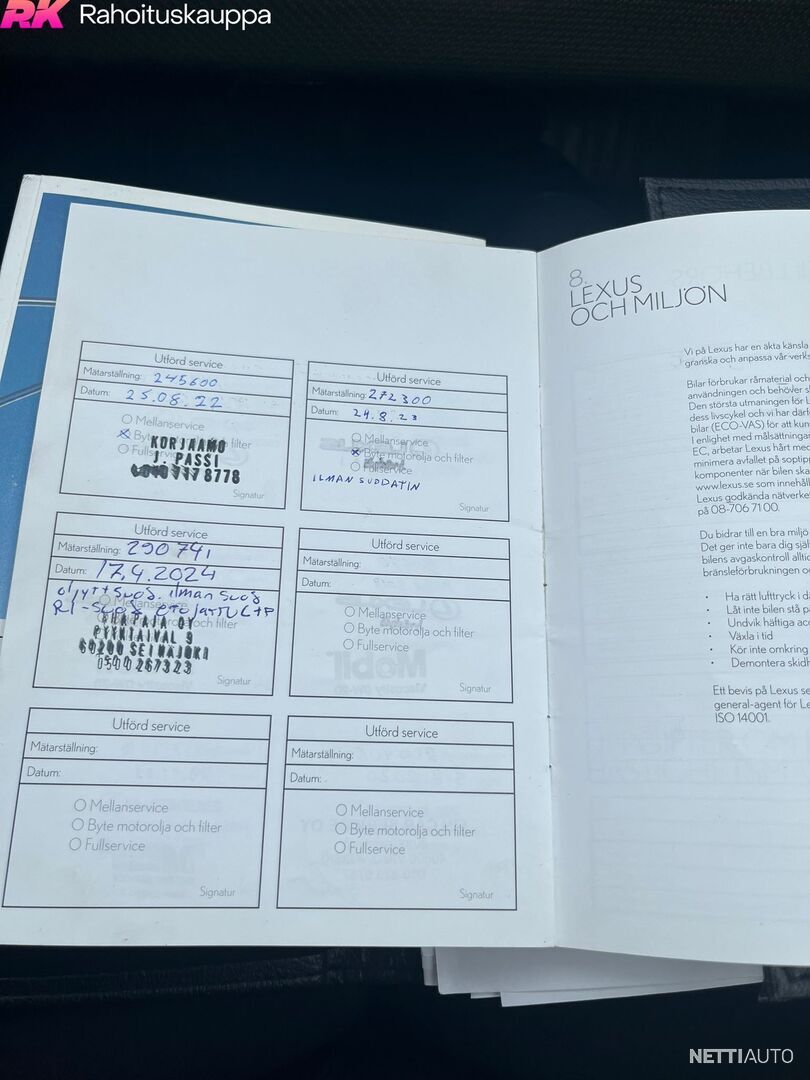 RK Rahoituskauppa
Utförd service
Mätarställning: 245600
Datum: 25.08.22
Mellanservice
Fullservice
KORJAAMO
J. PASSI
Signatur
Utförd service
Mätarställning: 272300
Datum: 24.8.23
Mellanservice
Byte motorolja och filter
Fullservice
ILMAN SUODATIN
Signatur
Utförd service
Mätarställning: 290741
Datum: 17.4.2024
PYYNTAIVAL 9
60200 SEINÄJOKI
0500 267323
Signatur
Utförd service
Mätarställning:
Datum:
Mellanservice
Byte motorolja och filter
Fullservice
Signatur
Utförd service
Mätarställning:
Datum:
Mellanservice
Byte motorolja och filter
Fullservice
Signatur
Utförd service
Mätarställning:
Datum:
Mellanservice
Byte motorolja och filter
Fullservice
Signatur
8.
LEXUS
OCH MILJÖN
Vi på Lexus har en äkta känsla
granska och anpassa vår verks
Bilar förbrukar råmaterial och
användningen och behöver s
Den största utmaningen för L
dess livscykel och vi har därf
bilar (ECO-VAS) för att kun
I enlighet med målsättningar
EC, arbetar Lexus hårt med
minimera avfallet på soptipp
komponenter när bilen ska
www.lexus.se som innehåll
Lexus godkända nätverke
på 08-706 71 00.
Du bidrar till en bra miljö
Det ger inte bara dig själ
bilens avgaskontroll alltid
bränsleförbrukningen oc
• Ha rätt lufttryck i d
• Låt inte bilen stå p
• Undvik häftiga acc
• Växla i tid
• Kör inte omkring
• Demontera skidh
Ett bevis på Lexus se
general-agent för Le
ISO 14001.
NETTIAUTO